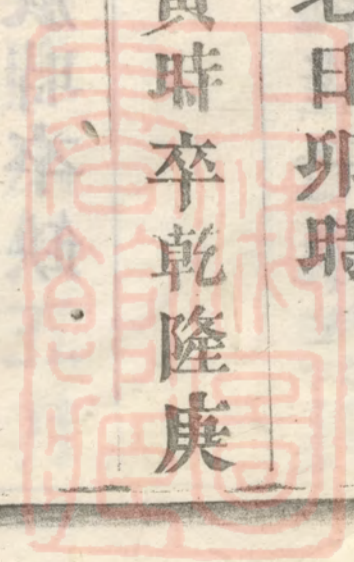 日卯時
寅時卒乾隆庚